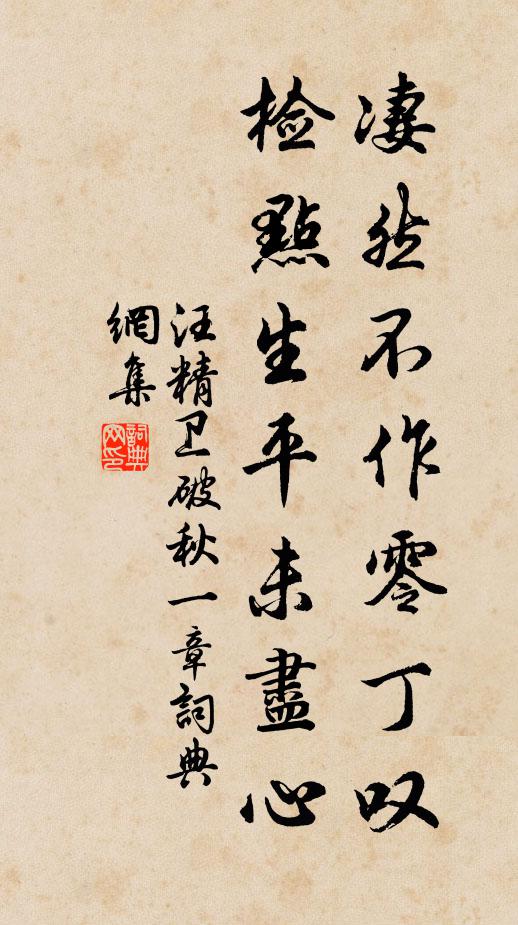 凄然不作零丁叹
检點生平未盡心
汪精卫破秋一章詞典
網集
詞典
网印